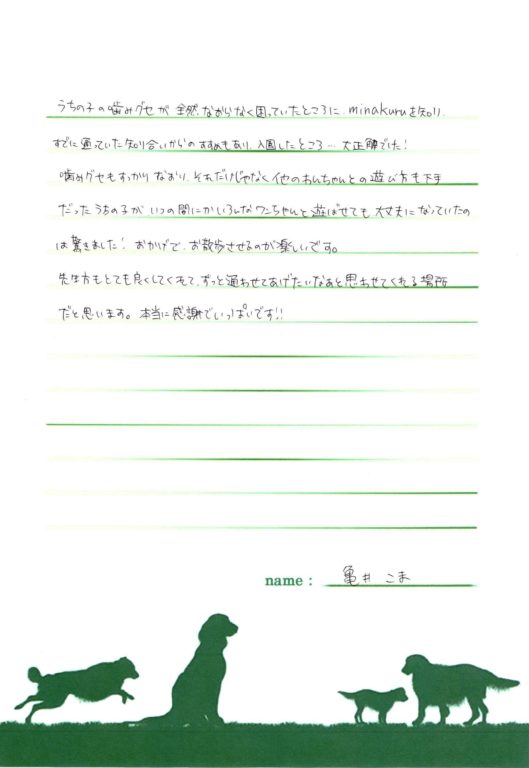 うちの子の噛みグセが全然なおらなく困っていたところに、minakuruを知り、
すでに通っていた知り合いからのすすめもあり、入園したところ…大正解でした!
噛みグセもすっかりなおり、それだけじゃなく他のわんちゃんとの遊び方も下手
だったうちの子がいつの間にかいろんなワンちゃんと遊ばせても大丈夫になっていたの
は驚きました!おかげで、お散歩させるのが楽しいです。
先生方もとても良くしてくれて、ずっと通わせてあげたいなあと思わせてくれる場所
だと思います。本当に感謝でいっぱいです!!
name : 亀井 こま